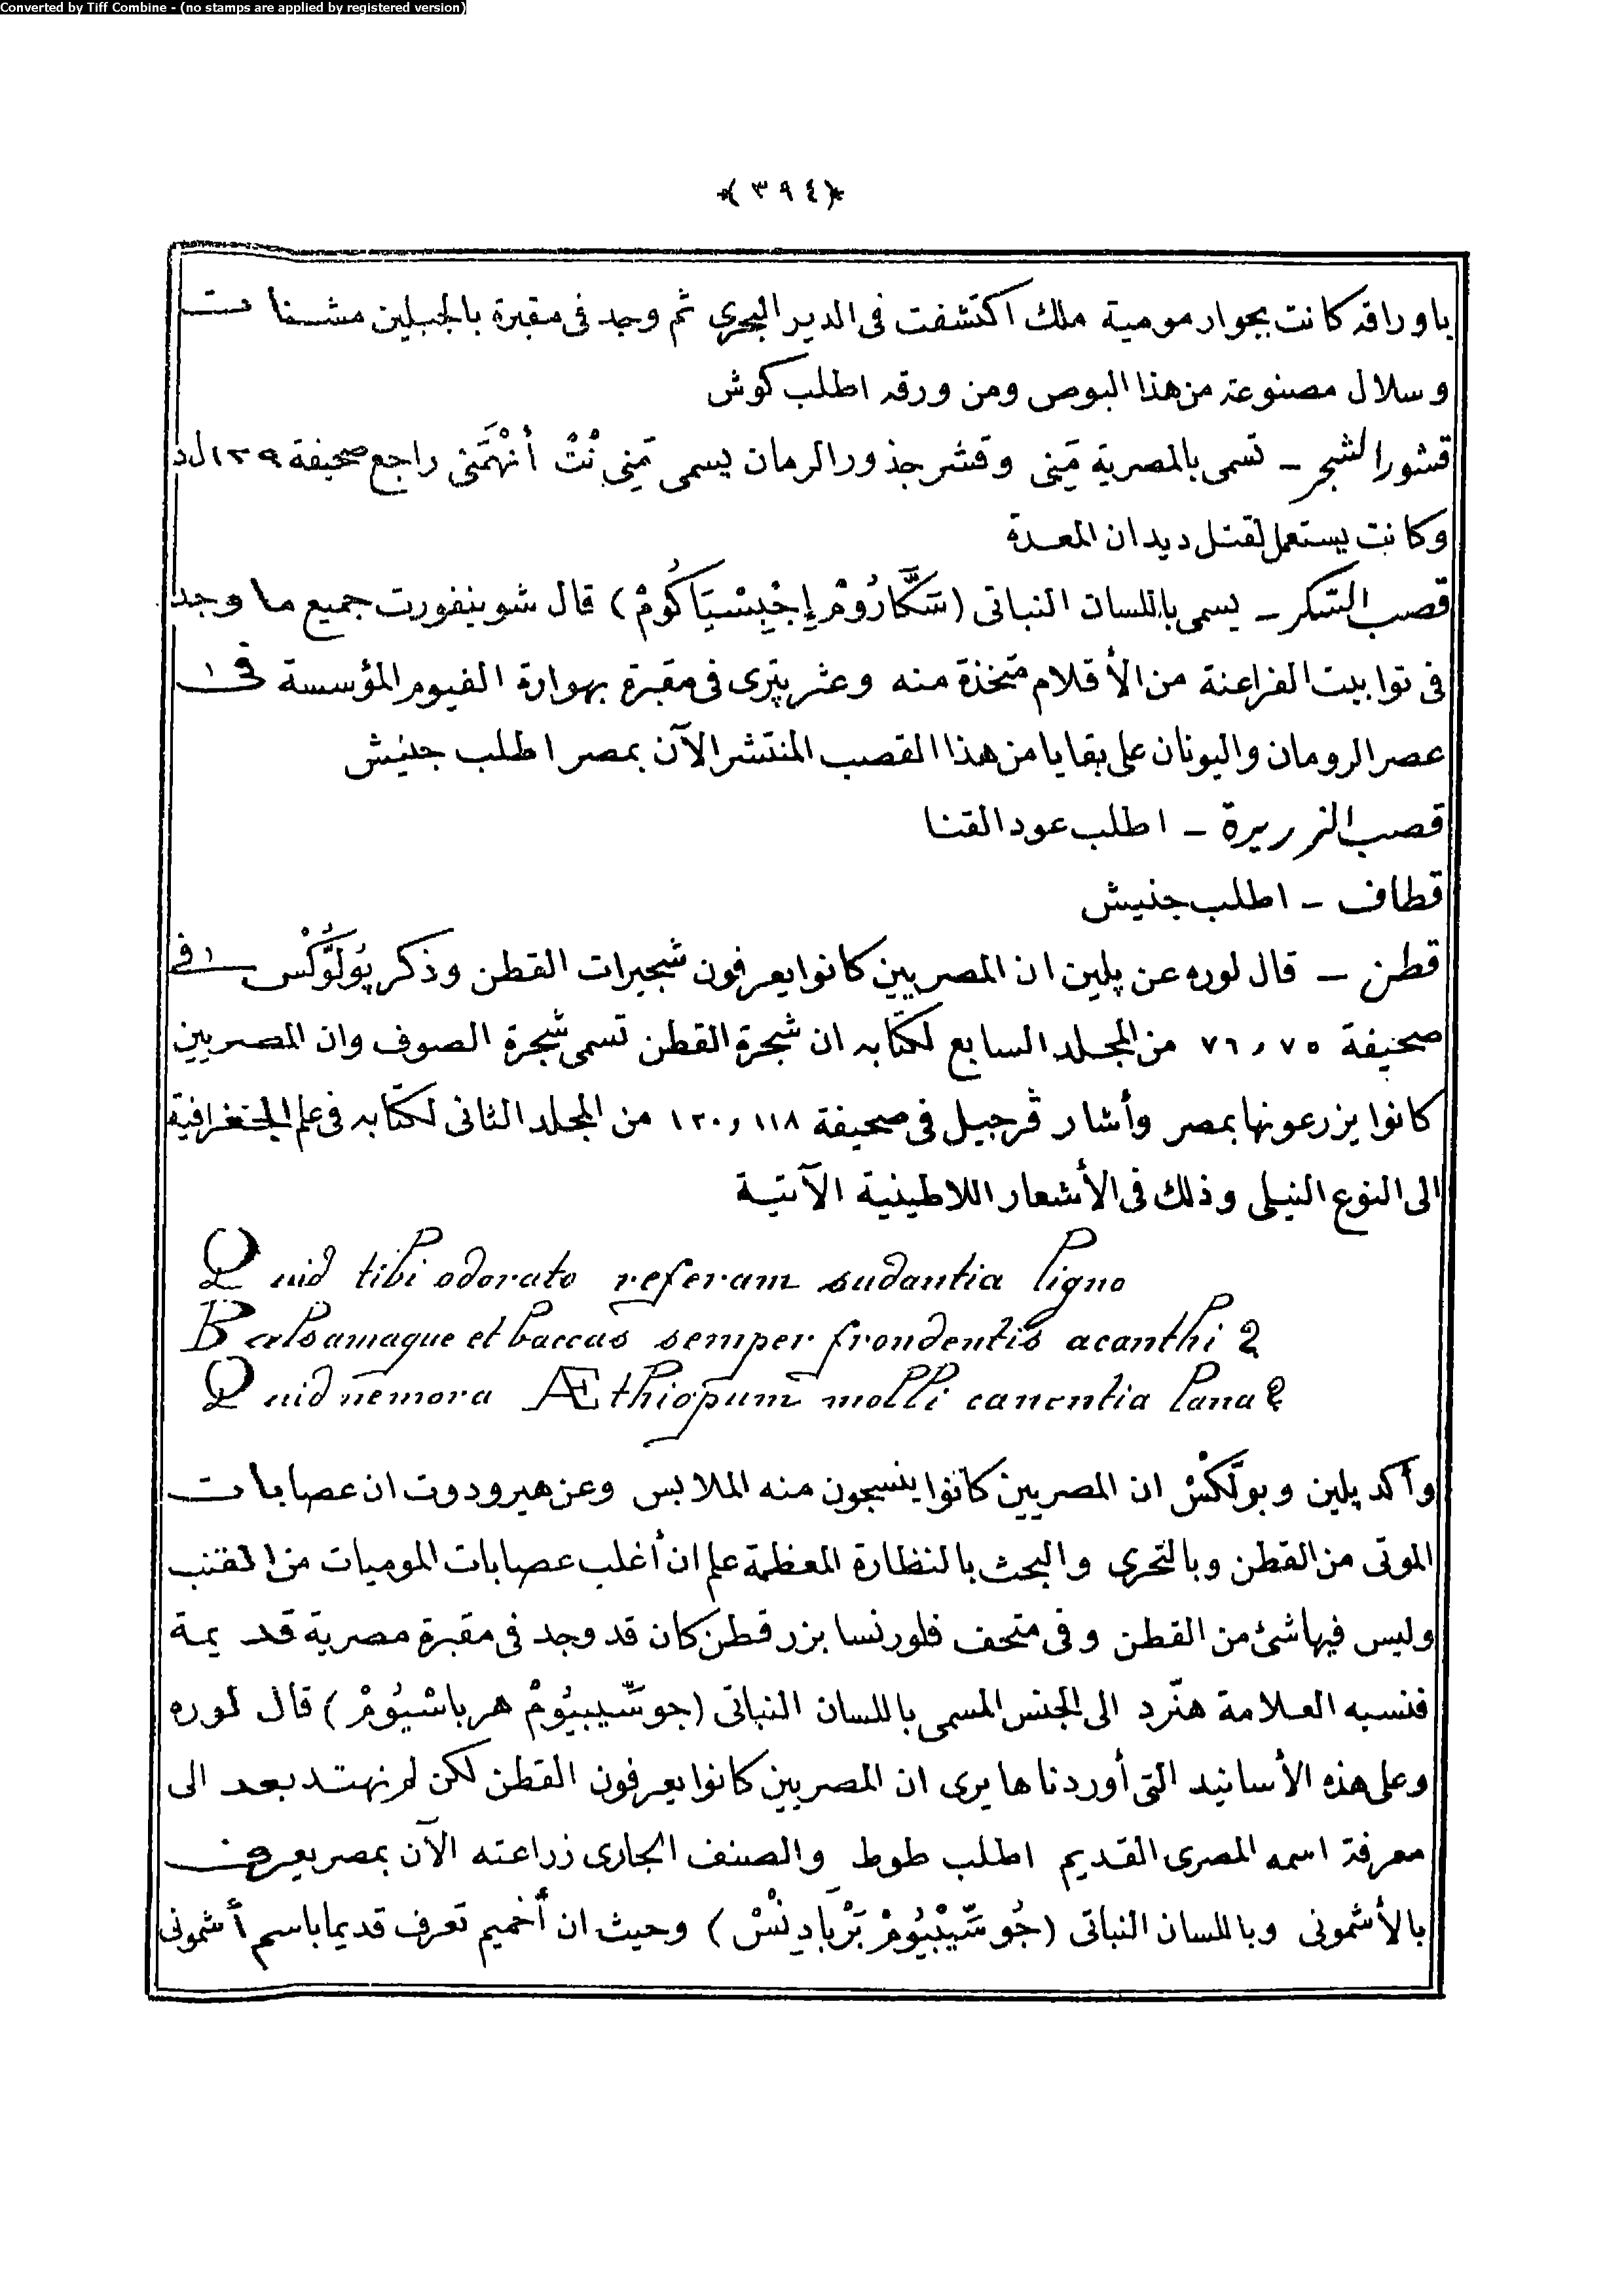 Converted by Tiff Combine - (no stamps are applied by registered version)
﴿٣٩٤﴾
باوراقه كانت بجوار مومية ملك اكتشفت فى الدير البحرى ثم وجد فى مقبرة بالجبلين مشنات
وسلال مصنوعة من هذا البوص ومن ورقه اطلب كوش
قشور الشجر ـ تسمى بالمصرية مَينى وقشر جذور الرمان يسمى مَينى نْتْ أَنْهَمَنى راجع صحيفة ١٣٩ لد
وكانت يستعمل لقتل ديدان المعدة
قصب السكر ـ يسمى باللسان النباتى (سَكَّارُومْ إِجْيِبْسْيَاكُومْ) قال شوينفورت جميع ما وجد
فى توابيت الفراعنة من الأقلام متخذة منه وعثر پترى فى مقبرة بهوارة الفيوم المؤسسة فى
عصر الرومان واليونان على بقايا من هذا القصب المنتشر الآن بمصر اطلب جنيش
قصب الزريرة ـ اطلب عود القنا
قطاف ـ اطلب جنيش
قطن ـ قال لوره عن پلين ان المصريين كانوا يعرفون شجيرات القطن وذكر پُولُّوكْس فى
صحيفة ٧٥ و ٧٦ من المجلد السابع لكتابه ان شجرة القطن تسمى شجرة الصوف وان المصريين
كانوا يزرعونها بمصر وأشار ڤرجيل فى صحيفة ١١٨ و ١٢٠ من المجلد الثانى لكتابه فى علم الجغرافية
الى النوع النيلى وذلك فى الأشعار اللاطينية الآتية
Quid tibi odorato referam sudantia ligno
Balsamaque et baccas semper frondentis acanthi?
Quid nemora Æthiopum molli canentia lana?
وأكد پلين وبولّكْسْ ان المصريين كانوا ينسجون منه الملابس وعن هيرودوت ان عصابات
الموتى من القطن وبالتحرى والبحث بالنظارة المعظمة علم ان أغلب عصابات الموميات من القنب
وليس فيها شئ من القطن وفى متحف فلورنسا بزر قطن كان قد وجد فى مقبرة مصرية قديمة
فنسبه العلامة هنّرد الى الجنس المسمى باللسان النباتى (جوسّيبيُومْ هرباسْيُومْ) قال لوره
وعلى هذه الأسانيد التى أوردناها يرى ان المصريين كانوا يعرفون القطن لكن لم نهتد بعد الى
معرفة اسمه المصرى القديم اطلب طوط والصنف الجارى زراعته الآن بمصر يعرف
بالأشمونى وباللسان النباتى (جُوسِّيْبْيُومْ بَرْبَادِنْسْ) وحيث ان أخميم تعرف قديما باسم أشمونى